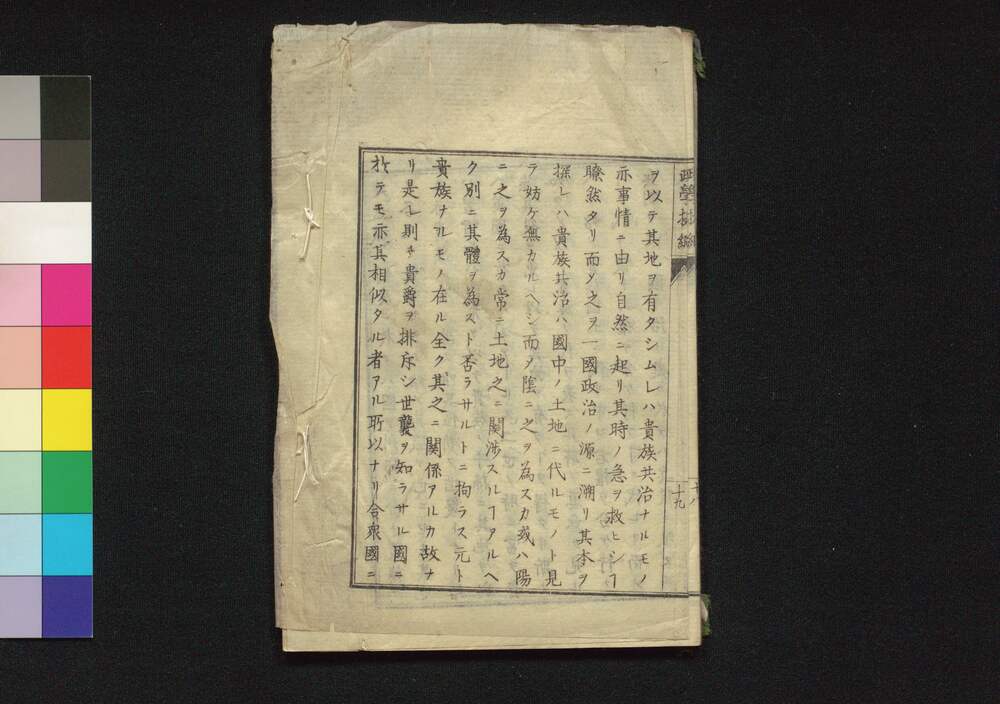 ヲ以テ其地ヲ有タシムレハ貴族共治ナルモノ
亦事情ニ由リ自然ニ起リ其時ノ急ヲ救ヒシヿ
瞭然タリ而〆之ヲ一國政治ノ源ニ溯リ其本ヲ
探レハ貴族共治ハ國中ノ土地ニ代ルモノト見
ラ妨ケ無カルヘシ而〆陰ニ之ヲ為スカ或ハ陽
ニ之ヲ為スカ常ニ土地之ニ関渉スルヿアルヘ
ク別ニ其體ヲ為スト否ラサルトニ拘ラス元ト
貴族ナルモノ在ル全ク其之ニ関係アルカ故ナ
リ是レ則チ貴爵ヲ排斥シ世襲ヲ知ラサル國ニ
於テモ亦其相似タル者アル所以ナリ合衆國ニ
十九